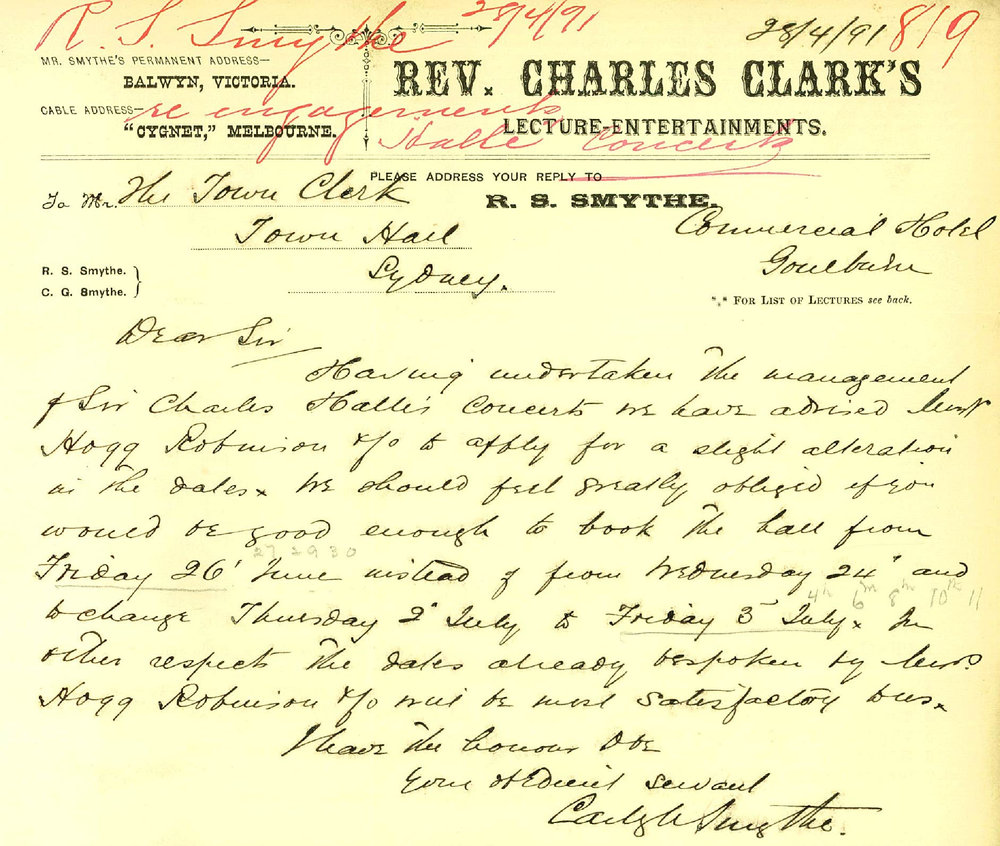 R. S. Smythe 28/4/91 28/4/91 819
MR. SMYTHE'S PERMANENT ADDRESS—
BALWYN, VICTORIA.
CABLE ADDRESS—
"CYGNET," MELBOURNE.
re engagements
Halle Concerts
REV. CHARLES CLARK'S
LECTURE-ENTERTAINMENTS.
PLEASE ADDRESS YOUR REPLY TO
R. S. SMYTHE.
To Mr. The Town Clerk
Town Hall
Sydney.
R. S. Smythe.
C. G. Smythe.
Commercial Hotel
Goulburn
*.* FOR LIST OF LECTURES see back.
Dear Sir
Having undertaken the management
of Sir Charles Halle's Concerts we have advised Messrs
Hogg Robinson & Co to apply for a slight alteration
in the dates. We should feel greatly obliged if you
would be good enough to book the hall from
27 29 30
Friday 26' June instead of from Wednesday 24' and
4th 6th 8th 10th 11
to change Thursday 2d July to Friday 3d July. In
other respects the dates already bespoken by Messrs
Hogg Robinson & Co will be most satisfactory to us.
I have the honour to be
Your obedient servant
Carlyle Smythe.